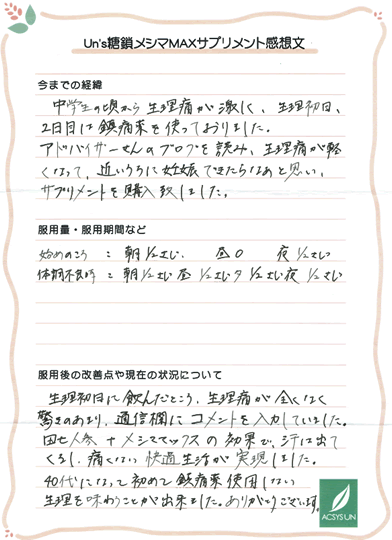 Un's糖鎖メシマMAXサプリメント感想文
今までの経緯
中学生の頃から生理痛が激しく、生理初日、
2日目は鎮痛薬を使っておりました。
アドバイザーさんのブログを読み、生理痛が軽
くなって、近いうちに妊娠できたらなあと思い、
サプリメントを購入致しました。
服用量・服用期間など
始めのころ : 朝1/2さじ、昼0 夜1/2さじ
体調不良時 : 朝1/2さじ 昼1/2さじ 夕1/2さじ 夜1/2さじ
服用後の改善点や現在の状況について
生理初日に飲んだところ、生理痛が全くなく
驚きのあまり、通信欄にコメントを入力していました。
田七人参+メシママックスの効果で、汗は出て
くるし、痛くない快適生活が実現しました。
40代になって初めて鎮痛薬使用しない
生理を味わうことが出来ました。ありがとうございます。
ACSYS UN